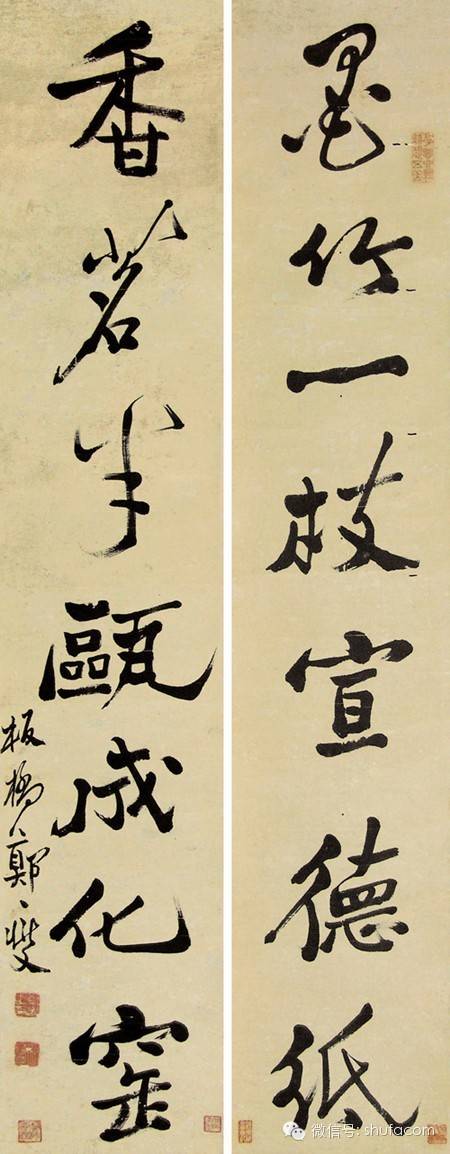 墨竹一枝宣德纸
香茗半瓯成化窑
板桥郑燮
微信号: shufacom